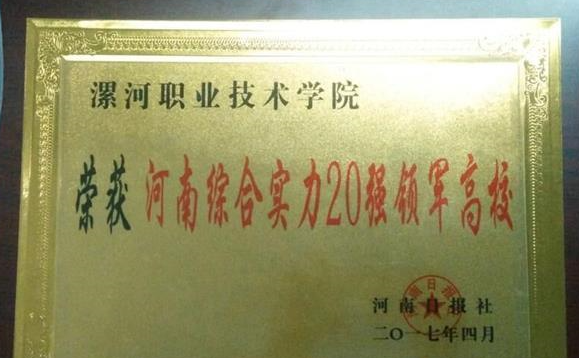 漯河职业技术学院
荣获 河南综合实力20强领军高校
河南日报社
二〇一七年四月